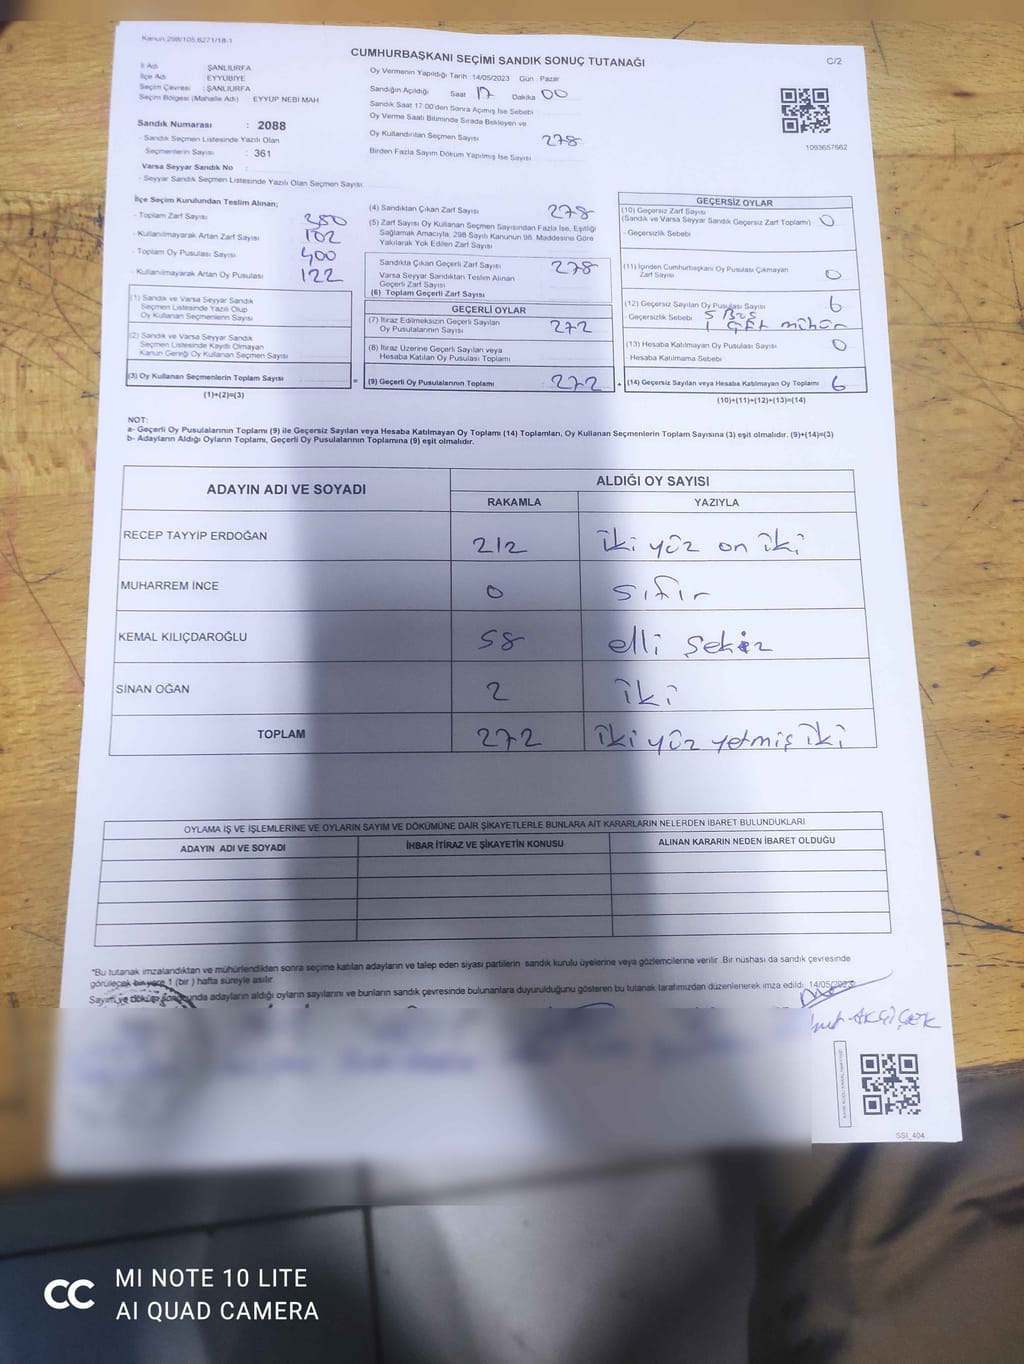 Kanun.298/105,6271/18-1
CUMHURBAŞKANI SEÇİMİ SANDIK SONUÇ TUTANAĞI
C/2
İl Adı : ŞANLIURFA
İlçe Adı : EYYÜBİYE
Seçim Çevresi : ŞANLIURFA
Seçim Bölgesi (Mahalle Adı) : EYYUP NEBİ MAH
Sandık Numarası : 2088
- Sandık Seçmen Listesinde Yazılı Olan
Seçmenlerin Sayısı : 361
Varsa Seyyar Sandık No :
- Seyyar Sandık Seçmen Listesinde Yazılı Olan Seçmen Sayısı
Oy Vermenin Yapıldığı Tarih : 14/05/2023 Gün : Pazar
Sandığın Açıldığı Saat 17 Dakika 00
Sandık Saat 17:00'den Sonra Açımış İse Sebebi
Oy Verme Saati Bitiminde Sırada Bekleyen ve
Oy Kullandırılan Seçmen Sayısı 278
Birden Fazla Sayım Döküm Yapılmış İse Sayısı
1093657662
İlçe Seçim Kurulundan Teslim Alınan;
- Toplam Zarf Sayısı 380
- Kullanılmayarak Artan Zarf Sayısı 102
- Toplam Oy Pusulası Sayısı 400
- Kullanılmayarak Artan Oy Pusulası 122
(1) Sandık ve Varsa Seyyar Sandık
Seçmen Listesinde Yazılı Olup
Oy Kullanan Seçmenlerin Sayısı
(2) Sandık ve Varsa Seyyar Sandık
Seçmen Listesinde Kayıtlı Olmayan
Kanun Gereği Oy Kullanan Seçmen Sayısı
(3) Oy Kullanan Seçmenlerin Toplam Sayısı
(1)+(2)=(3)
(4) Sandıktan Çıkan Zarf Sayısı 278
(5) Zarf Sayısı Oy Kullanan Seçmen Sayısından Fazla İse, Eşitliği
Sağlamak Amacıyla, 298 Sayılı Kanunun 98. Maddesine Göre
Yakılarak Yok Edilen Zarf Sayısı
Sandıkta Çıkan Geçerli Zarf Sayısı 278
Varsa Seyyar Sandıktan Teslim Alınan
Geçerli Zarf Sayısı
(6) Toplam Geçerli Zarf Sayısı
GEÇERLİ OYLAR
(7) İtiraz Edilmeksizin Geçerli Sayılan
Oy Pusulalarının Sayısı 272
(8) İtiraz Üzerine Geçerli Sayılan veya
Hesaba Katılan Oy Pusulası Toplamı
= (9) Geçerli Oy Pusulalarının Toplamı 272
GEÇERSİZ OYLAR
(10) Geçersiz Zarf Sayısı
(Sandık ve Varsa Seyyar Sandık Geçersiz Zarf Toplamı) 0
- Geçersizlik Sebebi
(11) İçinden Cumhurbaşkanı Oy Pusulası Çıkmayan
Zarf Sayısı 0
(12) Geçersiz Sayılan Oy Pusulası Sayısı 6
- Geçersizlik Sebebi 5 Boş
1 Çift mühür
(13) Hesaba Katılmayan Oy Pusulası Sayısı 0
- Hesaba Katılmama Sebebi
+ (14) Geçersiz Sayılan veya Hesaba Katılmayan Oy Toplamı 6
(10)+(11)+(12)+(13)=(14)
NOT:
a- Geçerli Oy Pusulalarının Toplamı (9) ile Geçersiz Sayılan veya Hesaba Katılmayan Oy Toplamı (14) Toplamları, Oy Kullanan Seçmenlerin Toplam Sayısına (3) eşit olmalıdır. (9)+(14)=(3)
b- Adayların Aldığı Oyların Toplamı, Geçerli Oy Pusulalarının Toplamına (9) eşit olmalıdır.
ADAYIN ADI VE SOYADI ALDIĞI OY SAYISI
RAKAMLA YAZIYLA
RECEP TAYYİP ERDOĞAN 212 iki yüz on iki
MUHARREM İNCE 0 sıfır
KEMAL KILIÇDAROĞLU 58 elli sekiz
SİNAN OĞAN 2 iki
TOPLAM 272 iki yüz yetmiş iki
OYLAMA İŞ VE İŞLEMLERİNE VE OYLARIN SAYIM VE DÖKÜMÜNE DAİR ŞİKAYETLERLE BUNLARA AİT KARARLARIN NELERDEN İBARET BULUNDUKLARI
ADAYIN ADI VE SOYADI İHBAR İTİRAZ VE ŞİKAYETİN KONUSU ALINAN KARARIN NEDEN İBARET OLDUĞU
"Bu tutanak imzalandıktan ve mühürlendikten sonra seçime katılan adayların ve talep eden siyasi partilerin sandık kurulu üyelerine veya gözlemcilerine verilir. Bir nüshası da sandık çevresinde
görülecek bir yere 1 (bir) hafta süreyle asılır.
Sayım ve döküm sonucunda adayların aldığı oyların sayılarını ve bunların sandık çevresinde bulunanlara duyurulduğunu gösteren bu tutanak tarafımızdan düzenlenerek imza edildi. 14/05/2023
AKÇİÇEK
SSI_404
MI NOTE 10 LITE
AI QUAD CAMERA